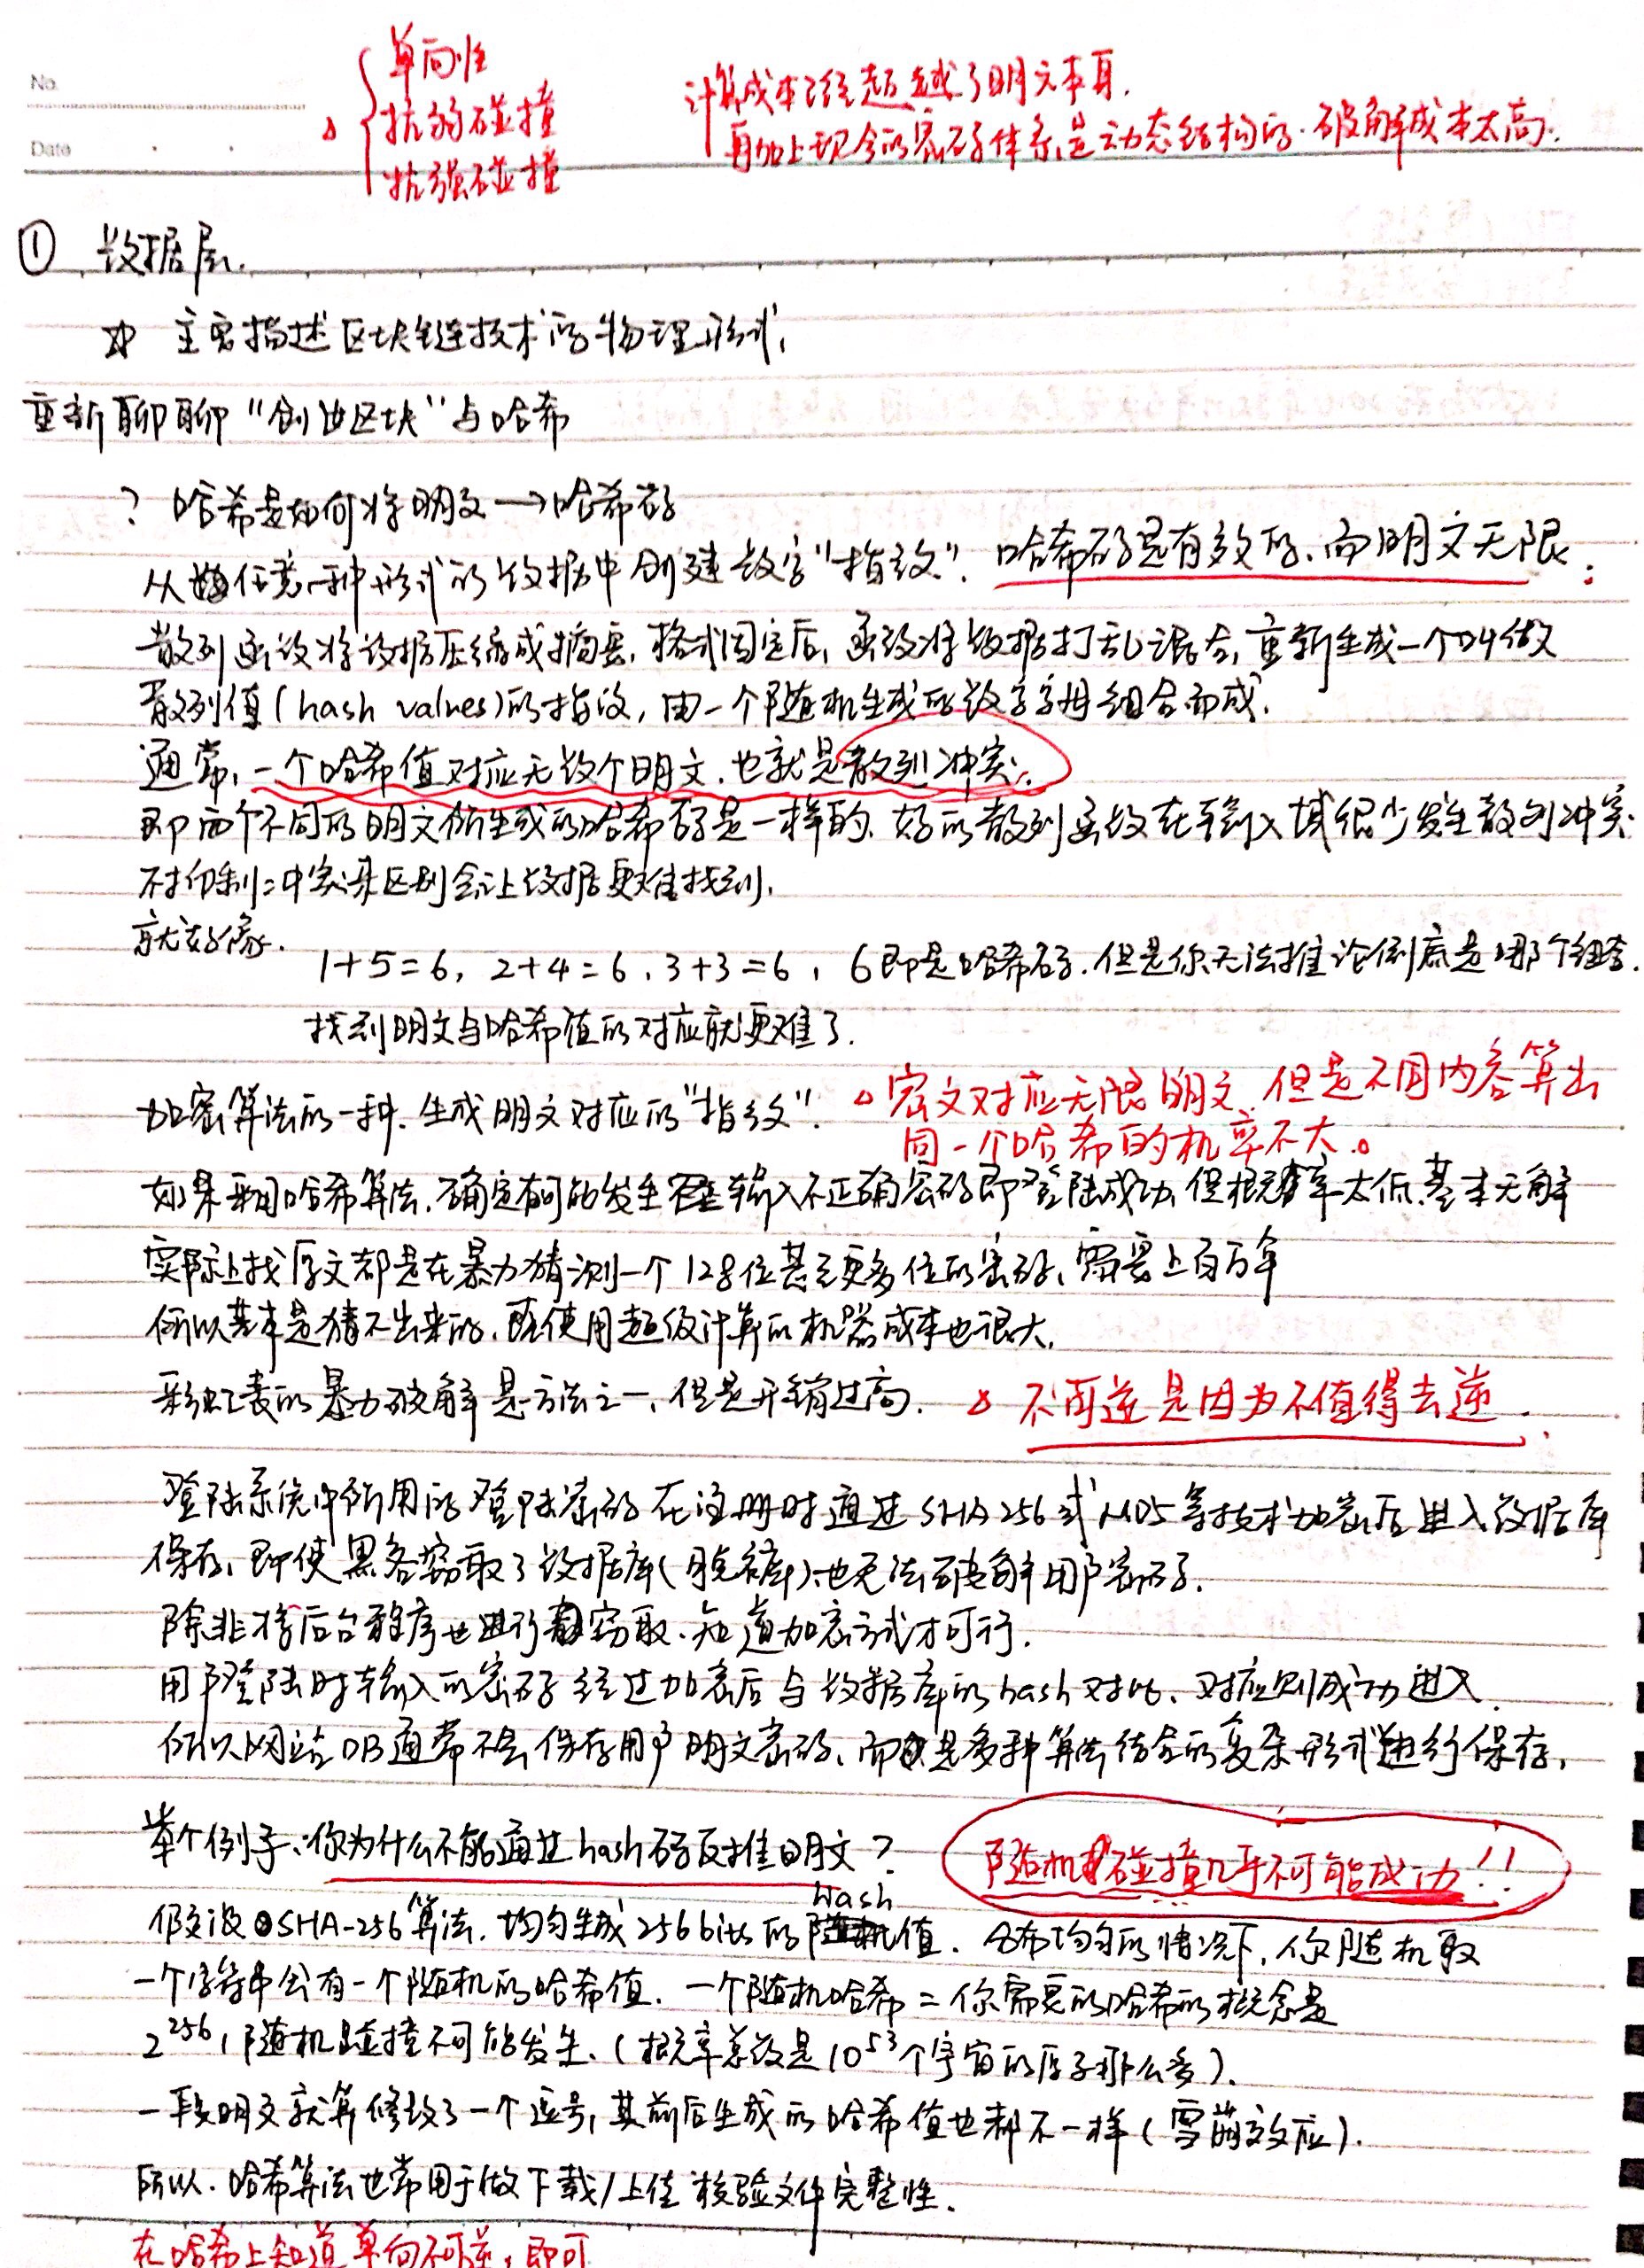 No.
Date
△
单向性
抗弱碰撞
抗强碰撞
计算成本已经超越了明文本身.
再加上现今的密码体系是动态结构的.破解成本太高.
① 数据层.
☆ 主要描述区块链技术的物理形式,
重新聊聊“创世区块”与哈希
? 哈希是如何将明文→哈希码
从任意一种形式的数据中创建数字“指纹”. 哈希码是有效的.而明文无限.
散列函数将数据压缩成摘要,格式固定后,函数将数据打乱混合,重新生成一个叫做
散列值(hash values)的指纹,由一个随机生成的数字字母组合而成.
通常,一个哈希值对应无数个明文.也就是散列冲突.
即两个不同的明文所生成的哈希码是一样的.好的散列函数在输入域很少发生散列冲突.
不抑制冲突来区别会让数据更难找到.
就好像.
1+5=6, 2+4=6, 3+3=6, 6即是哈希码.但是你无法推论倒底是哪个组合.
找到明文与哈希值的对应就更难了.
加密算法的一种.生成明文对应的“指纹”.
△密文对应无限明文,但是不同内容算出
同一个哈希的机率不大。
如果采用哈希算法.确定有可能发生输入不正确密码即登陆成功.但概率太低.基本无解
实际上找原文都是在暴力猜测一个128位甚至更多位的密码、需要上百万年
所以基本是猜不出来的.既使用超级计算的机器成本也很大.
彩虹表的暴力破解是方法之一,但是开销过高. △ 不可逆是因为不值得去逆.
登陆系统中所用的登陆密码在注册时通过SHA256或MD5等技术加密后进入数据库
保存.即使黑客窃取了数据库(脱裤)也无法破解用户密码.
除非将后台程序也进行窃取.知道加密方式才可行.
用户登陆时输入的密码经过加密后与数据库的hash对比、对应则成功进入.
所以网站DB通常不会保存用户明文密码、而是多种算法结合的复杂形式进行保存.
举个例子:你为什么不能通过hash码反推明文?
随机碰撞几乎不可能成功!!
假设SHA-256算法.均匀生成256bits的hash值. 分布均匀的情况下,你随机取
一个字符串会有一个随机的哈希值. 一个随机哈希=你需要的哈希的概念是
2^256,随机碰撞不可能发生.(概率总数是10^53个宇宙的原子那么多).
一段明文就算修改了一个逗号,其前后生成的哈希值也都不一样(雪崩效应).
所以.哈希算法也常用于做下载/上传校验文件完整性.
在哈希上知道单向不可逆,即可